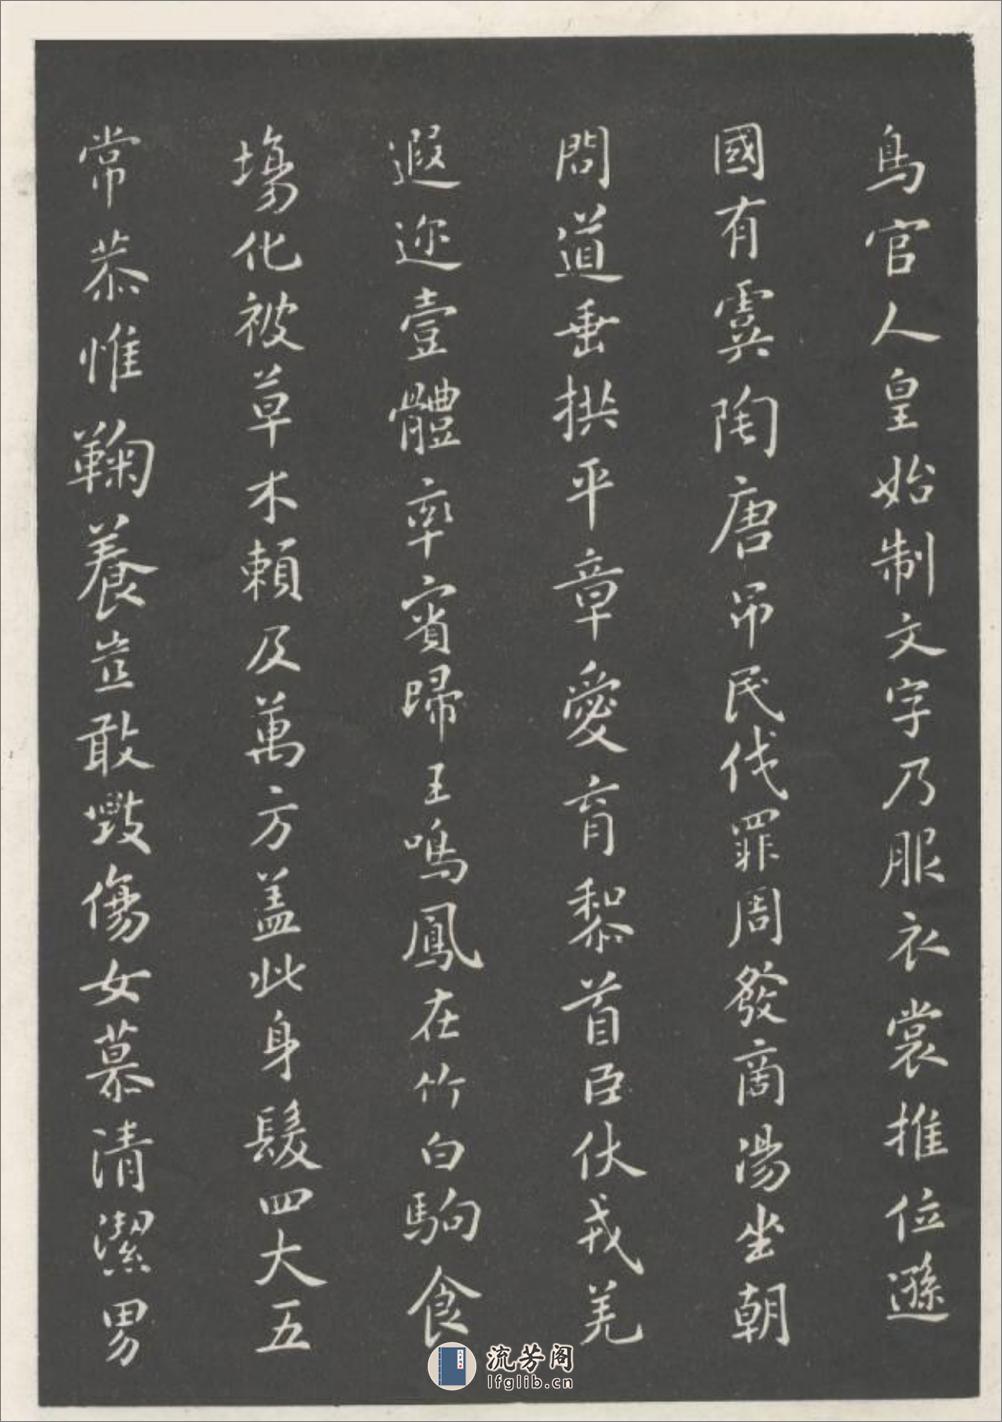 鳥官人皇始制文字乃服衣裳推位遜
國有虞陶唐吊民伐罪周發商湯坐朝
問道垂拱平章愛育黎首臣伏戎羌
遐迩壹體率賓歸王鳴鳳在竹白駒食
場化被草木賴及萬方盖此身髮四大五
常恭惟鞠養豈敢毀傷女慕清潔男
流芳阁
lfglib.cn